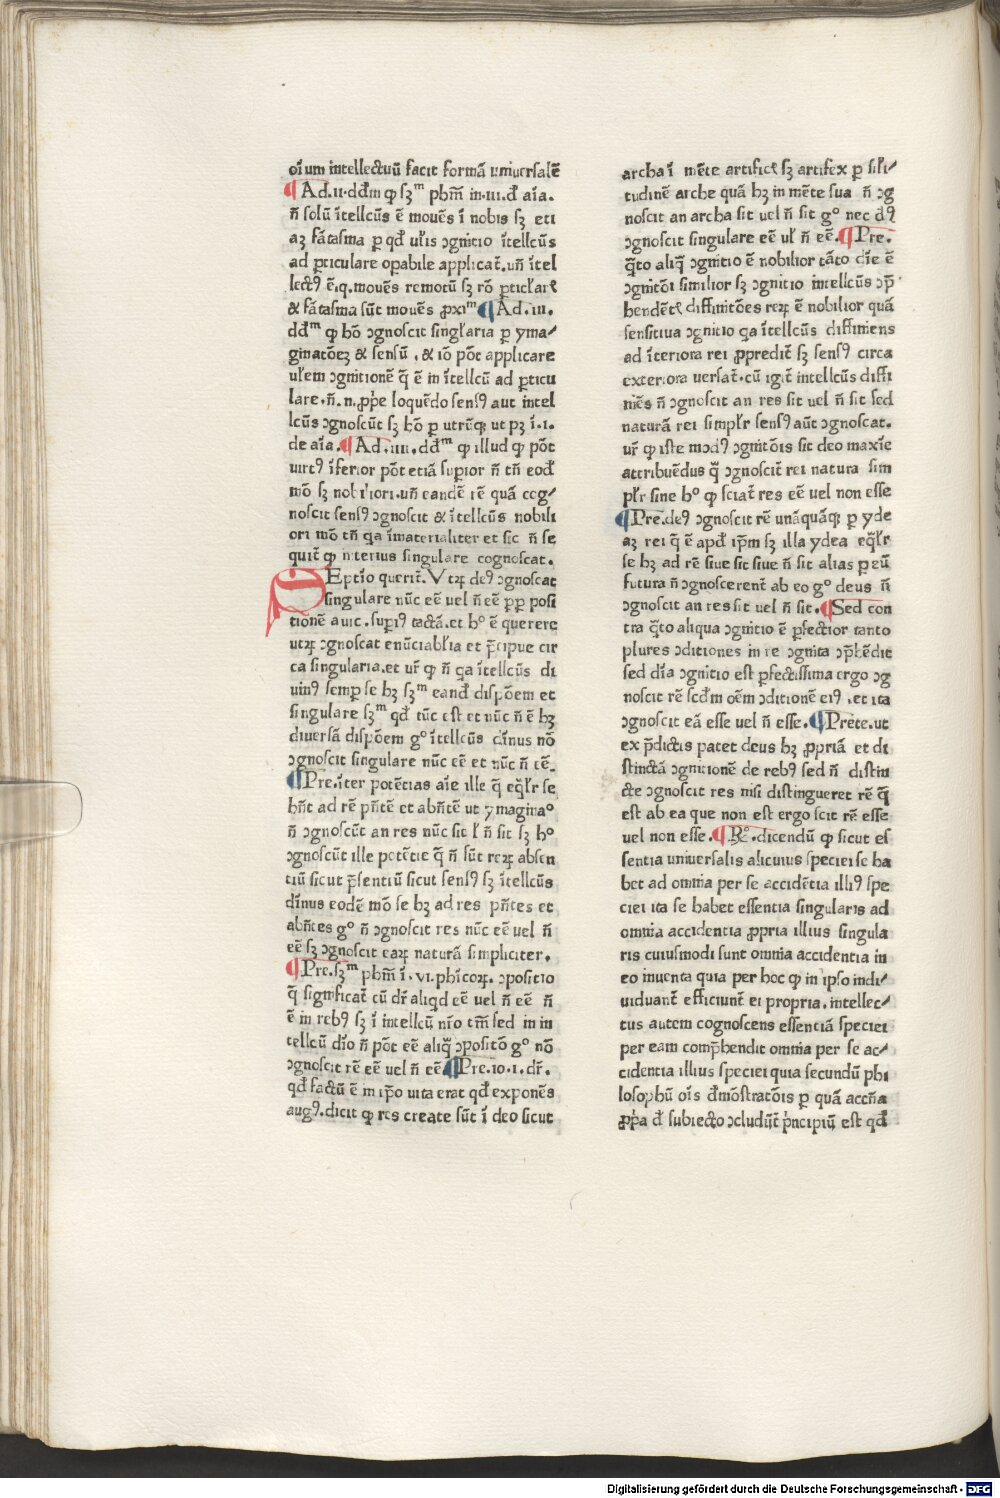 oı̄um intellectuū facit formā uniuersalē
¶Ad.ii.dd̄m ꝙ sꝫᵐ phm̄ in.iii.đ aı̄a.
n̄ solū ītellcūs ē mouēs ī nobis sꝫ eti
aꝫ fātasma ꝑ qđ ul̄is ꝯgnitio ītellcūs
ad ꝑticulare opabile applicat̄.un̄ ītel
lectꝰ ē.q.mouēs remotū sꝫ rō ꝑticl̄arꝭ
& fātasma sūt mouēs ꝓxiᵐ ¶Ad.iii.
dd̄ᵐ ꝙ hō ꝯgnoscit singl̄aria ꝑ yma⸗
ginatōeꝫ & sensū , & iō pōt applicare
ul̄em ꝯgnitionē q̄ ē in ītellcū ad ꝑticu
lare.n̄.n.ꝓp̄e loquēdo sensꝰ aut intel
lcūs ꝯgnoscūt sꝫ hō ꝑ utrūqꝫ ut pꝫ ī.i.
de aı̄a.¶Ad.iiii.dd̄ᵐ ꝙ illud ꝙ pōt
uirtꝰ īferior pōt etiā suꝑior n̄ tn̄ eođ
mō sꝫ nobiliori.un̄ eandē rē quā cog⸗
noscit sensꝰ ꝯgnoscit & ītellcūs nobili
ori mō tn̄ qa īmaterialiter et sic n̄ se
quit̄ ꝙ interius singulare cognoscat.
Septīo querit̄.Utꝝ deꝰ ꝯgnoscat
singulare nūc eē uel n̄ eē ꝓꝑ posi
tionē auic.suꝑiꝰ tactā.et hº ē querere
utꝝ ꝯgnoscat enūciabl̄ia et p̄cipue cir
ca singularia.et ur̄ ꝙ n̄ qa ītellcūs di
uinꝰ semꝑ se hꝫ sꝫᵐ eanđ dispōem et
singulare sꝫᵐ qđ tūc est et nūc n̄ ē hꝫ
diuersā dispōem gº ītellcūs dīnus nō
ꝯgnoscit singulare nūc eē et nūc n̄ eē.
¶Pre.īter potētias aīe ille q̄ eql̄r se
hn̄t ad rē pn̄tē et abn̄tē ut ymaginaº
n̄ ꝯgnoscūt an res nūc sit l̄ n̄ sit sꝫ hº
ꝯgnoscūt ille potētie q̄ n̄ sūt reꝝ absen
tiū sicut p̄sentiū sicut sensꝰ sꝫ ītellcūs
dīnus eodē mō se hꝫ ad res pn̄tes et
abn̄tes gº n̄ ꝯgnoscit res nūc eē uel n̄
eē sꝫ ꝯgnoscit eaꝝ naturā simpliciter.
¶Pre.sꝫᵐ phm̄ ī.vi.phicoꝝ.ꝯpositio
q̄ significat̄ cū dr̄ aliqđ eē uel n̄ eē n̄
ē in rebꝰ sꝫ ī intellcū nīo tm̄ sed in in
tellcū dīo n̄ pōt eē aliq̄ ꝯpositō gº nō
ꝯgnoscit rē eē uel n̄ eē ¶Pre.io.i.dr̄.
qđ factū ē in ip̄o uita erat qđ exponēs
augꝰ.dicit ꝙ res create sūt ī deo sicut
archa ī mēte artificꝭ sꝫ artifex ꝑ sil̄i⸗
tudinē arche quā hꝫ in mēte sua n̄ ꝯg
noscit an archa sit uel n̄ sit gº nec đꝰ
ꝯgnoscit singulare eē ul̄ n̄ eē.¶Pre.
q̄to aliq̄ ꝯgnitio ē nobilior tāto dīe ē
ꝯgnitōi similior sꝫ ꝯgnitio intellcūs ꝯp̄
hendētꝭ diffinitōes reꝝ ē nobilior quā
sensitiua ꝯgnitio qa ītellcūs diffiniens
ad īteriora rei ꝓpredit̄ sꝫ sensꝰ circa
exteriora uersat̄.cū igit̄ intellcūs diffi
niēs n̄ ꝯgnoscit an res sit uel n̄ sit sed
naturā rei simpl̄r sensꝰ aūt ꝯgnoscat.
ur̄ ꝙ iste modꝰ ꝯgnitōis sit deo maxīe
attribuēdus q̄ ꝯgnoscit̄ rei natura sim
pl̄r sine hº ꝙ sciat̄ res eē uel non esse
¶Pre.deꝰ ꝯgnoscit rē unāquāqꝫ ꝑ yde
aꝫ rei q̄ ē apđ ip̄m sꝫ illa ydea eql̄r
se hꝫ ad rē siue sit siue n̄ sit alias ꝑ eū
futura n̄ ꝯgnoscerent̄ ab eo gº deus n̄
ꝯgnoscit an res sit uel n̄ sit.¶Sed con
tra q̄to aliqua ꝯgnitio ē ꝑfectior tanto
plures ꝯditiones in re ꝯgnita ꝯp̄hēdit
sed dīa ꝯgnitio est ꝑfectissima ergo ꝯg
noscit rē scđm oēm ꝯditionē eiꝰ.et ita
ꝯgnoscit eā esse uel n̄ esse.¶Prete.ut
ex p̄dictis patet deus hꝫ ꝓpriā et di
stinctā ꝯgnitionē de rebꝰ sed n̄ distin
cte ꝯgnoscit res nisi distingueret rē q̄
est ab ea que non est ergo scit rē esse
uel non esse.¶Rº.dicendū ꝙ sicut es
sentia uniuersalis alicuius speciei se ha
bet ad omnia per se accidētia illiꝰ spe
ciei ita se habet essentia singularis ad
omnia accidentia ꝓpria illius singula
ris cuiusmodi sunt omnia accidentia in
eo inuenta quia per hoc ꝙ in ipso indi⸗
uiduant̄ efficiunt̄ ei propria.intellec⸗
tus autem cognoscens essentiā speciei
per eam comp̄hendit omnia per se ac⸗
cidentia illius speciei quia secundū phi
losophū oı̄s đmōstratōis ꝑ quā accn̄a
ꝓp̄a đ subiecto ꝯcludūt̄ p̄ncipiū est qđ
Digitalisierung gefördert durch die Deutsche Forschungsgemeinschaft - DFG